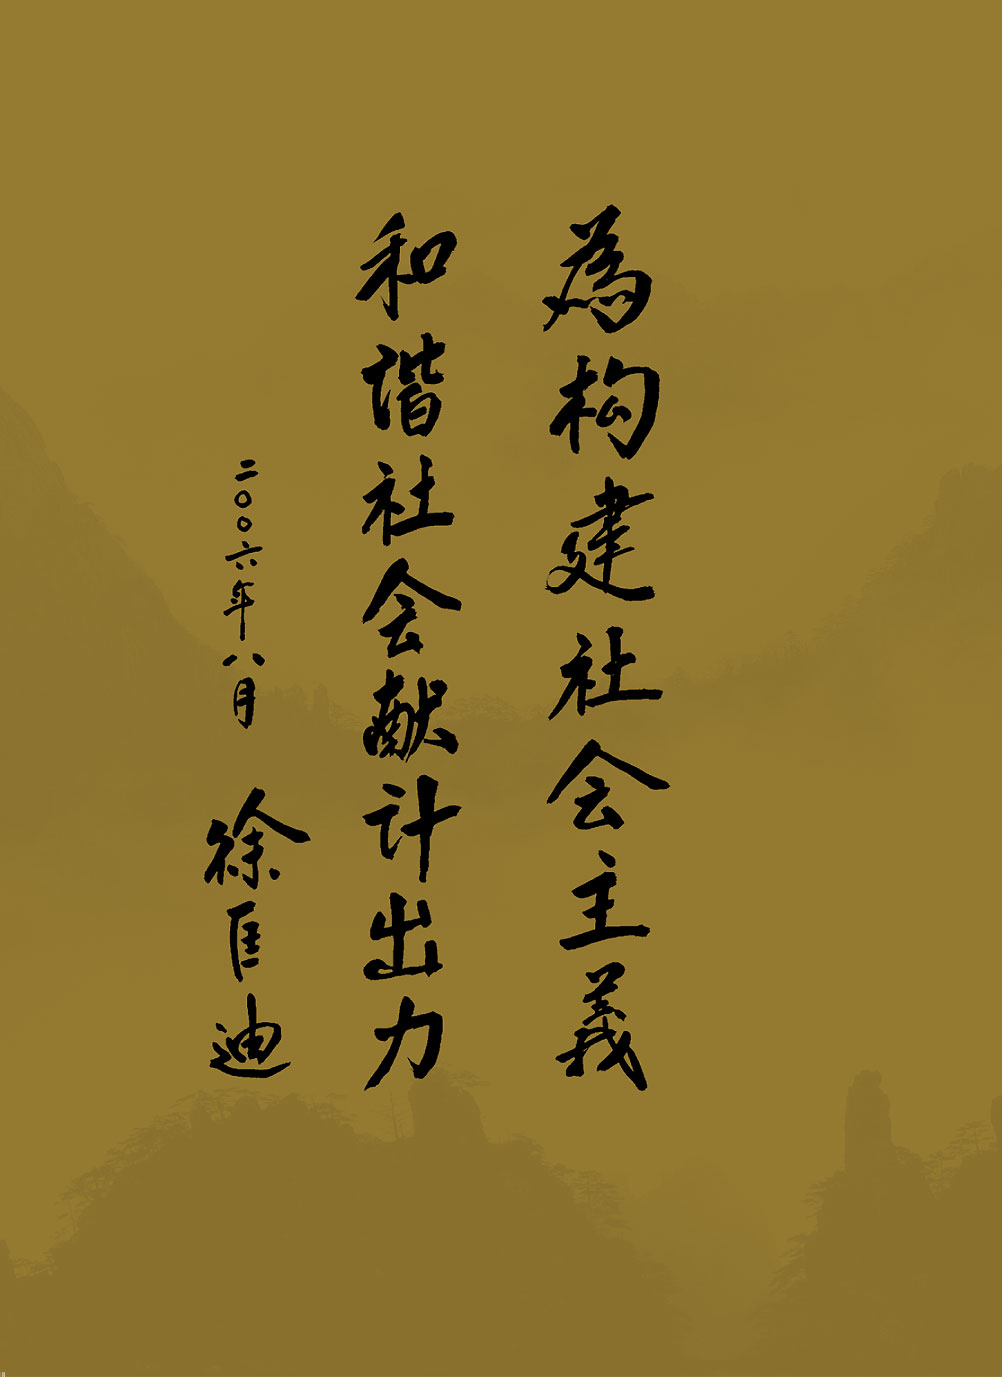 為构建社会主義
和谐社会献计出力
二〇〇六年八月 徐匡迪